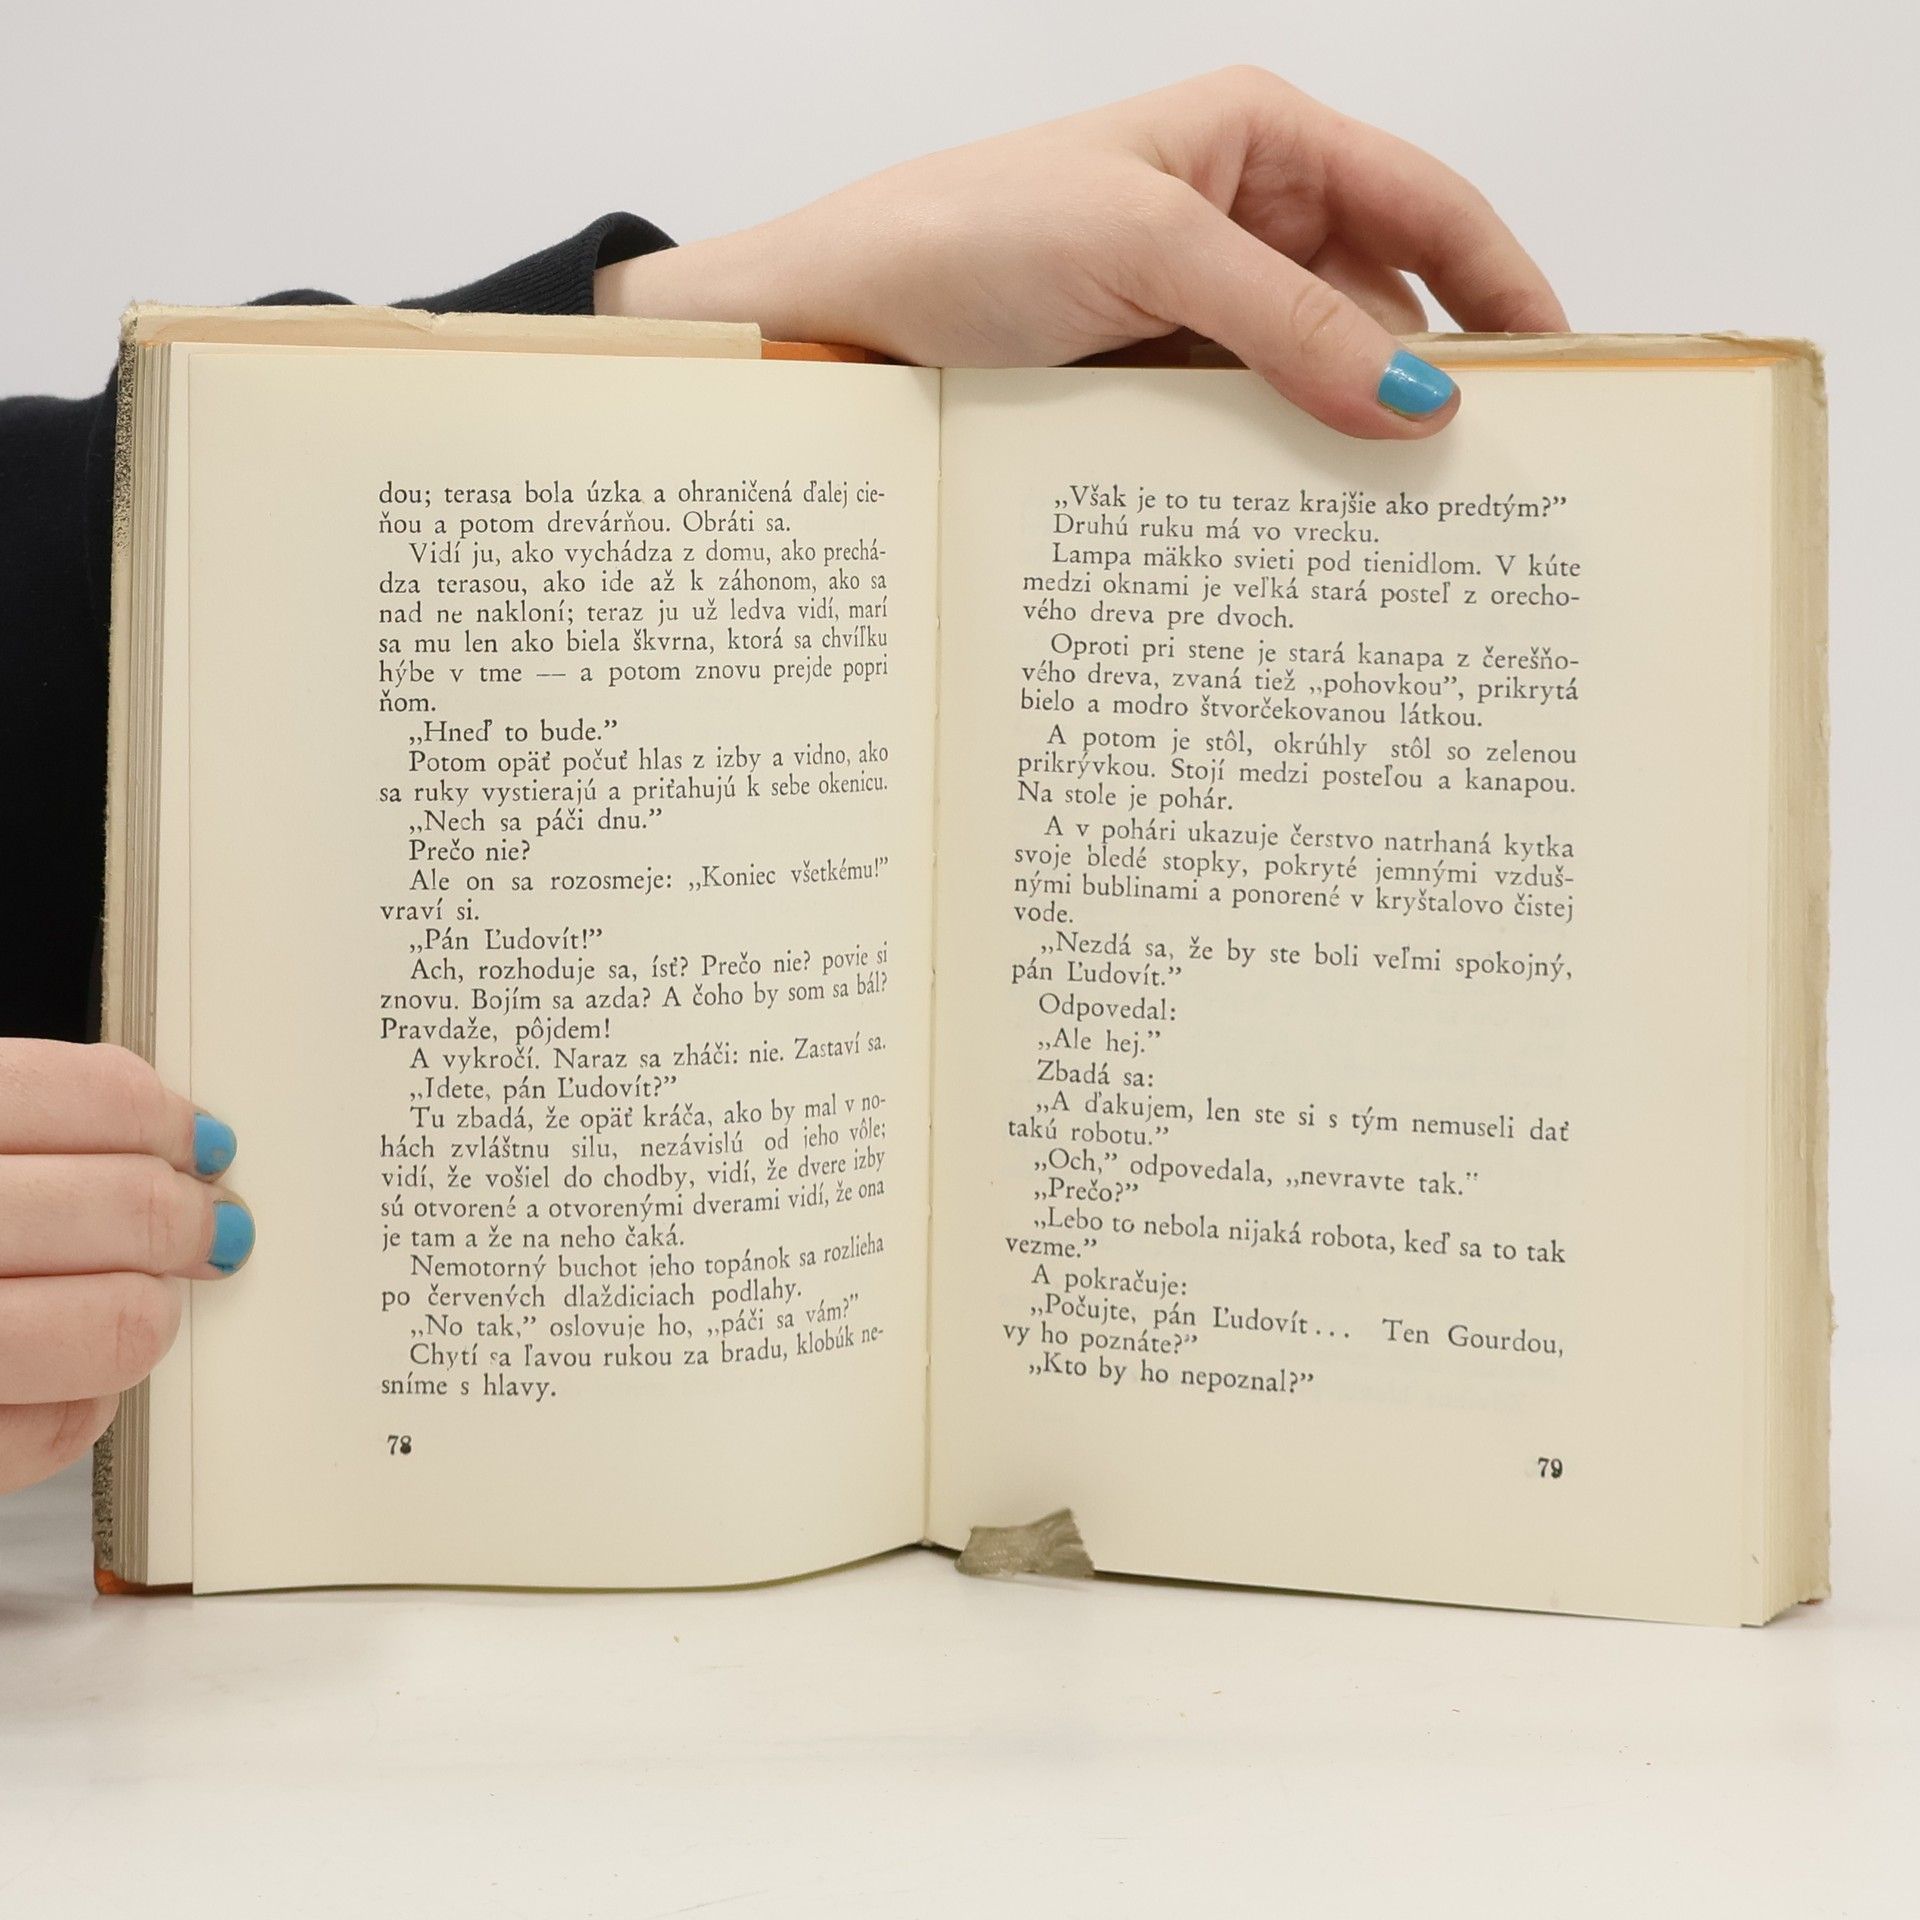 dou; terasa bola úzka a ohraničená ďalej cie-
ňou a potom drevárňou. Obráti sa.
Vidí ju, ako vychádza z domu, ako prechá-
dza terasou, ako ide až k záhonom, ako sa
nad ne nakloní; teraz ju už ledva vidí, marí
sa mu len ako biela škvrna, ktorá sa chvíľku
hýbe v tme — a potom znovu prejde popri
ňom.
„Hneď to bude.”
Potom opäť počuť hlas z izby a vidno, ako
sa ruky vystierajú a priťahujú k sebe okenicu.
„Nech sa páči dnu.”
Prečo nie?
Ale on sa rozosmeje: „Koniec všetkému!”
vraví si.
„Pán Ľudovít!”
Ach, rozhoduje sa, ísť? Prečo nie? povie si
znovu. Bojím sa azda? A čoho by som sa bál?
Pravdaže, pôjdem!
A vykročí. Naraz sa zháči: nie. Zastaví sa.
„Idete, pán Ľudovít?”
Tu zbadá, že opäť kráča, ako by mal v no-
hách zvláštnu silu, nezávislú od jeho vôle;
vidí, že vošiel do chodby, vidí, že dvere izby
sú otvorené a otvorenými dverami vidí, že ona
je tam a že na neho čaká.
Nemotorný buchot jeho topánok sa rozlieha
po červených dlaždiciach podlahy.
„No tak,” oslovuje ho, „páči sa vám?”
Chytí sa ľavou rukou za bradu, klobúk ne-
sníme s hlavy.
78
„Však je to tu teraz krajšie ako predtým?”
Druhú ruku má vo vrecku.
Lampa mäkko svieti pod tienidlom. V kúte
medzi oknami je veľká stará posteľ z orecho-
vého dreva pre dvoch.
Oproti pri stene je stará kanapa z čerešňo-
vého dreva, zvaná tiež „pohovkou”, prikrytá
bielo a modro štvorčekovanou látkou.
A potom je stôl, okrúhly stôl so zelenou
prikrývkou. Stojí medzi posteľou a kanapou.
Na stole je pohár.
A v pohári ukazuje čerstvo natrhaná kytka
svoje bledé stopky, pokryté jemnými vzduš-
nými bublinami a ponorené v kryštalovo čistej
vode.
„Nezdá sa, že by ste boli veľmi spokojný,
pán Ľudovít.”
Odpovedal:
„Ale hej.”
Zbadá sa:
„A ďakujem, len ste si s tým nemuseli dať
takú robotu.”
„Och,” odpovedala, „nevravte tak.”
„Prečo?”
„Lebo to nebola nijaká robota, keď sa to tak
vezme.”
A pokračuje:
„Počujte, pán Ľudovít... Ten Gourdou,
vy ho poznáte?”
„Kto by ho nepoznal?”
79